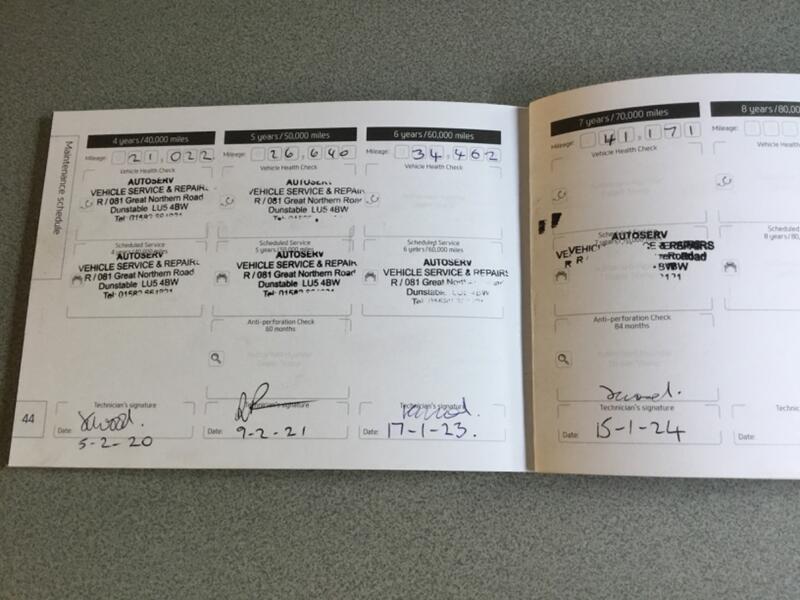 Maintenance schedule
44
4 years/40,000 miles
Mileage: 21,022
Vehicle Health Check
AUTOSERV
VEHICLE SERVICE & REPAIRS
R / 081 Great Northern Road
Dunstable LU5 4BW
Scheduled Service
AUTOSERV
VEHICLE SERVICE & REPAIRS
R / 081 Great Northern Road
Dunstable LU5 4BW
Technician's signature
Date: 5-2-20
5 years/50,000 miles
Mileage: 26,640
Vehicle Health Check
AUTOSERV
VEHICLE SERVICE & REPAIR
R / 081 Great Northern Road
Dunstable LU5 4BW
Scheduled Service
5 years/50,000 miles
AUTOSERV
VEHICLE SERVICE & REPAIR
R / 081 Great Northern Road
Dunstable LU5 4BW
Anti-perforation Check
60 months
Technician's signature
Date: 9-2-21
6 years/60,000 miles
Mileage: 34,462
Vehicle Health Check
Scheduled Service
6 years/60,000 miles
AUTOSERV
VEHICLE SERVICE & REPAIRS
R / 081 Great
Dunstable LU5 4BW
Technician's signature
Date: 17-1-23.
7 years/70,000 miles
Mileage: 41,171
Vehicle Health Check
Scheduled Service
AUTOSERV
Anti-perforation Check
84 months
Technician's signature
Date: 15-1-24
8 years/80,00
Mileage:
Vehicle H
Scheduled
8 years/80,
Technici
Date: